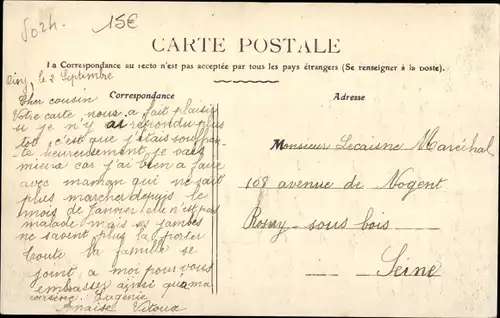 5024.
15€
CARTE POSTALE
La Correspondance au recto n'est pas acceptée par tous les pays étrangers (Se renseigner à la poste).
le 2 Septembre
Correspondance
Cher cousin
Votre carte, nous a fait plaisir
si je n'y ai repondu plus
tot c'est que j'étais souffran-
te heureusement, je vais
mieux car j'ai bien a faire
avec maman qui ne fait
plus marcher depuis le
mois de Janvier elle n'est pas
malade mais ses jambes
ne savent plus la porter
toute la famille se
joint, a moi pour vous
embrasser ainsi que ma
cousine Eugenie
Anaïse Vitoux
Adresse
Monsieur Lecaisne Maréchal
108 avenue de Nogent
Rosny-sous bois
Seine